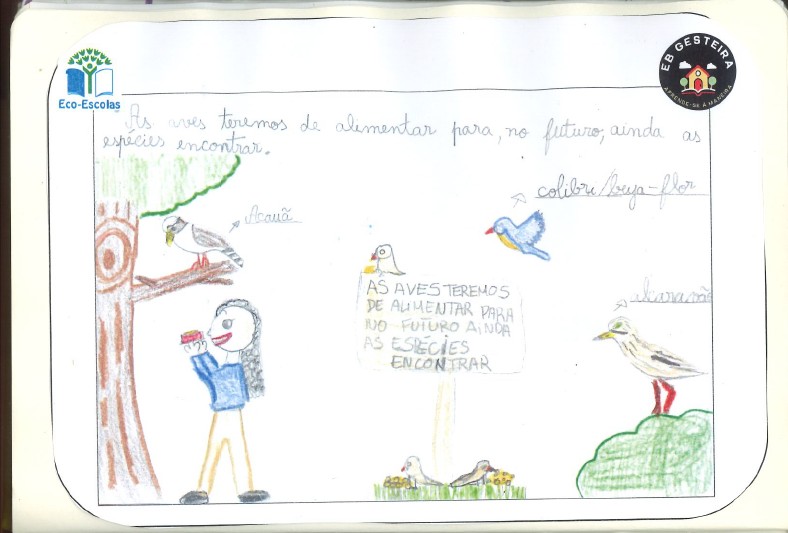 Eco-Escolas
EB GESTEIRA
APRENDE-SE À MANEIRA
As aves teremos de alimentar para, no futuro, ainda as
espécies encontrar.
colibri/beija-flor
Acauã
alcaravão
AS AVES TEREMOS
DE ALIMENTAR PARA
NO FUTURO AINDA
AS ESPÉCIES
ENCONTRAR